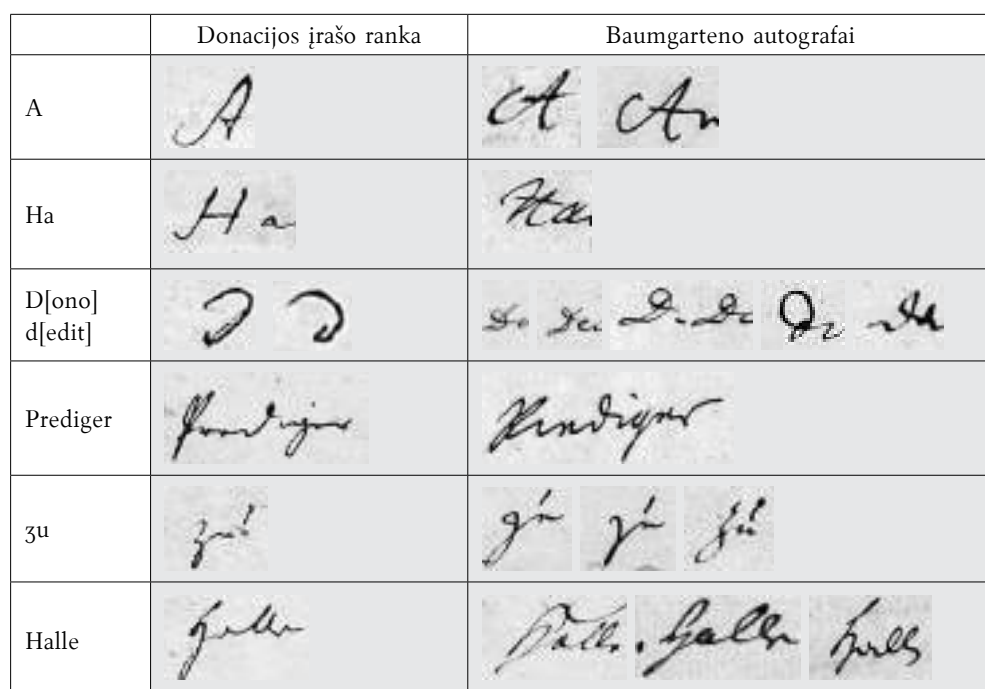 Donacijos įrašo ranka Baumgarteno autografai
A A A An
Ha H a Ha
D[ono]
d[edit] D D De De D. De D. De
Prediger Prediger Prediger
ʒu zu zu zu zu
Halle Halle Halle. Halle Halle